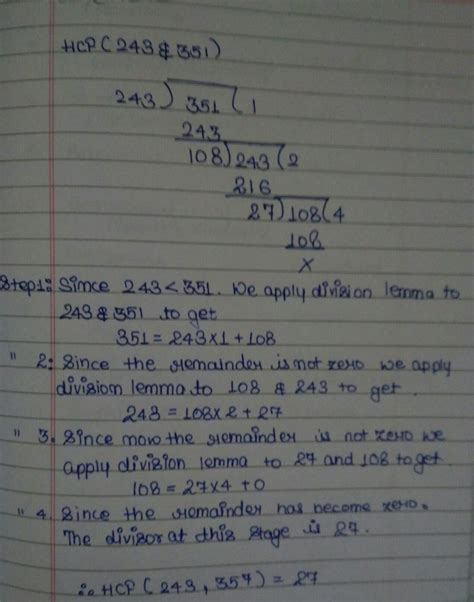 HCF ( 243 & 351 )
243 ) 351 ( 1
243
108 ) 243 ( 2
216
27 ) 108 ( 4
108
x
Step1: Since 243 < 351. We apply division lemma to
243 & 351 to get
351 = 243 x 1 + 108
" 2: Since the remainder is not zero we apply
division lemma to 108 & 243 to get.
243 = 108 x 2 + 27
" 3. Since now the remainder is not zero we
apply division lemma to 27 and 108 to get.
108 = 27 x 4 + 0
" 4. Since the remainder has become zero.
The divisor at this stage is 27.
∴ HCF ( 243, 357 ) = 27